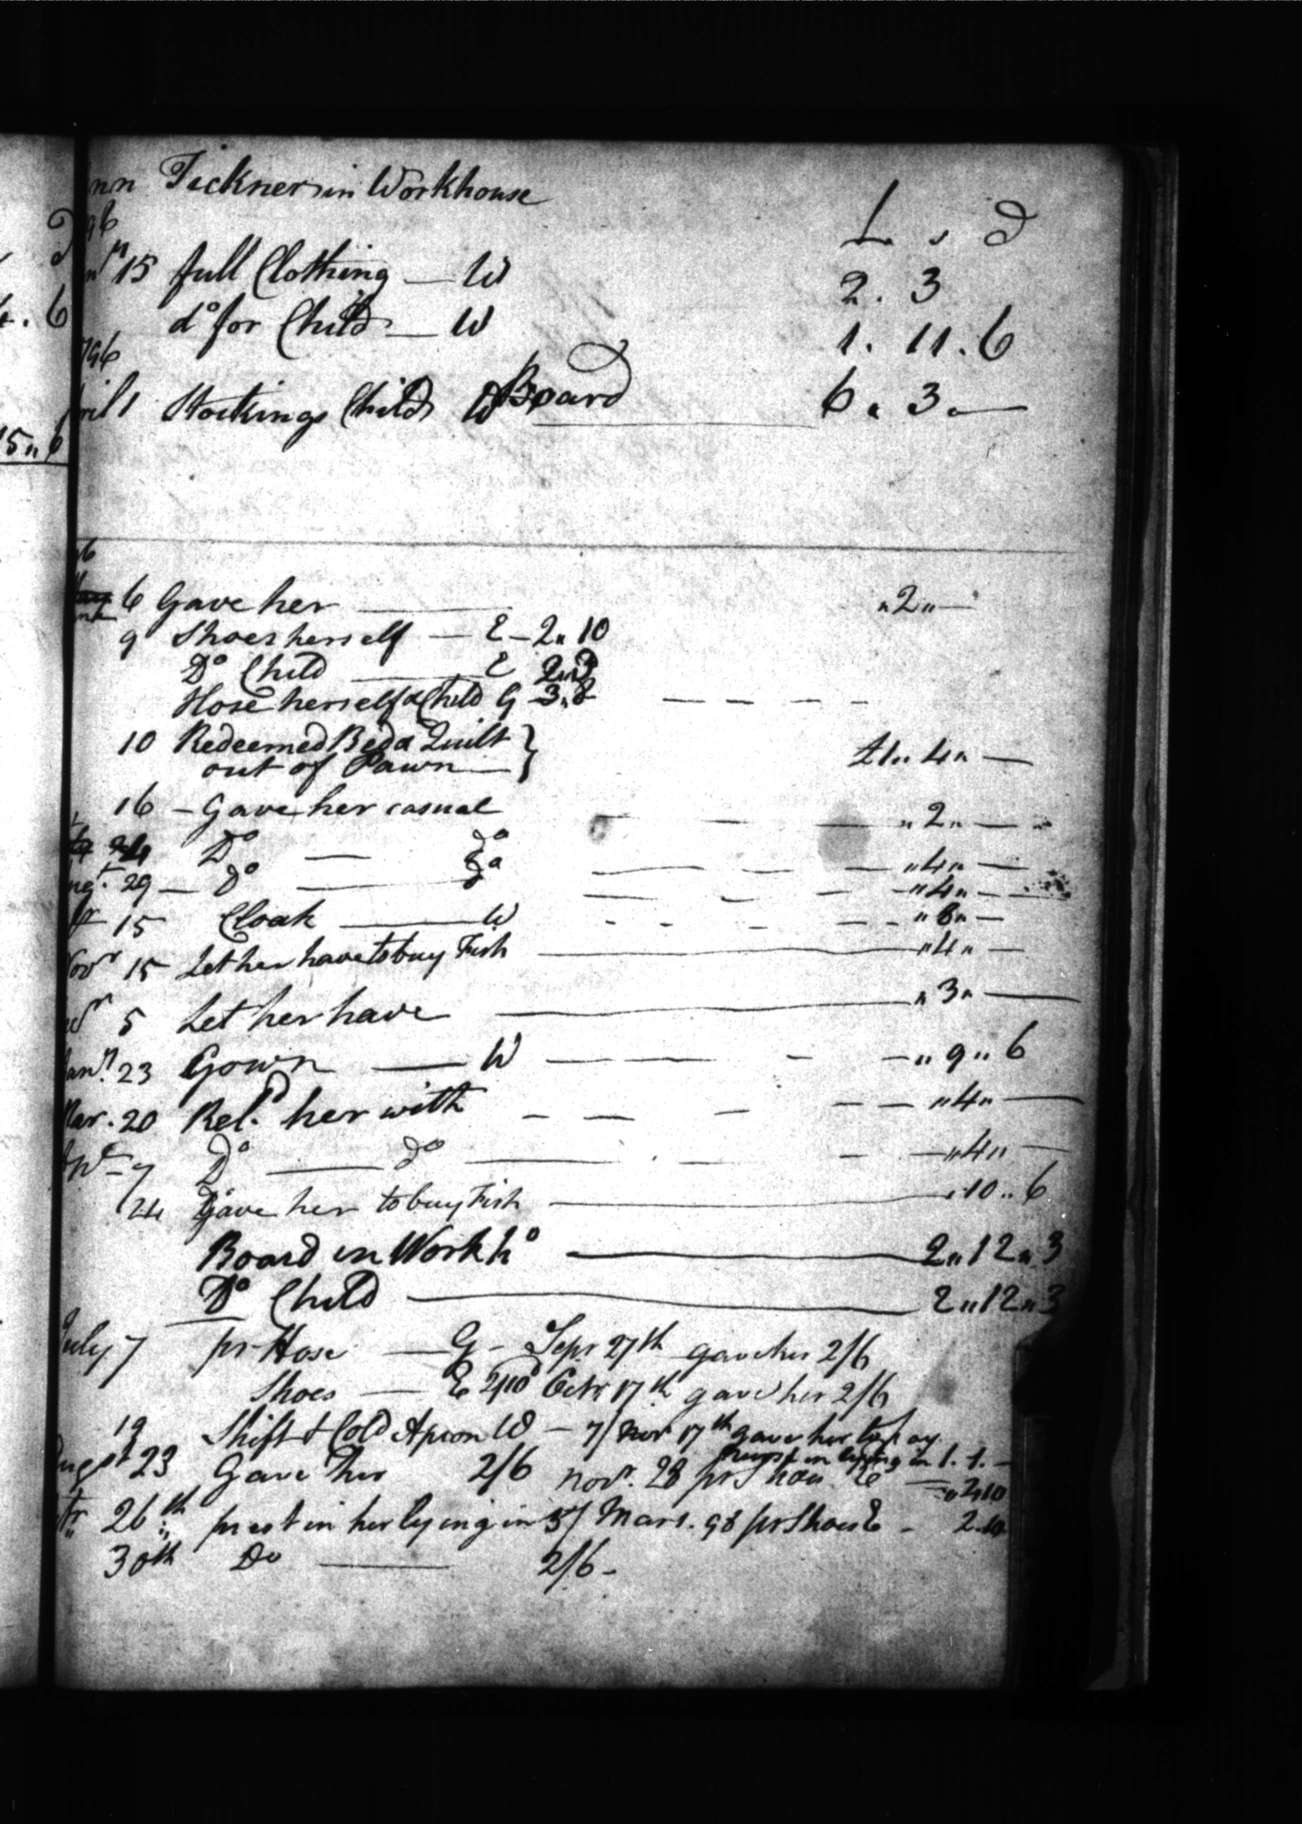 nn Ticknerin Workhouse
96
L s d
15 full Clothing — W 2. 3
do for Child — W 1. 11. 6
796
ril 1 Stockings Child W Board 6 . 3 . —
6 Gave her — " 2 " —
9 Shoes herself — E — 2 " 10
Do Child — E 2 " 3
Hose herself & Child G 3 " 8 — — — —
10 Redeemed Bed & Quilt }
out of Pawn — } £1 " 4 " —
16 — Gave her casual — — — " 2 " —
24 Do — do — — — " 4 " —
29 — do — do — — — " 4 " —
15 Cloak — W — — — " 8 " —
Novr 15 Let her have to buy Fish — " 4 " —
5 Let her have — " 3 " —
Jany 23 Gown — W — — — " 9 " 6
Mar. 20 Reld her with — — — — " 4 " —
7 Do — do — — — " 4 " —
24 Gave her to buy Fish — " 10 " 6
Board in Workho — 2 " 12 " 3
Do Child — 2 " 12 " 3
July 7 pr Hose — G — Sepr 27th gave her 2/6
Shoes — E 2/10 Octr 17th gave her 2/6
19 Shift & Cold Apron W — 7/ Novr 17th gave her to pay
Augst 23 Gave her 2/6 novr. 28 pr Shoes E — " 2 " 10
nurse in lying in 1 . 1 . —
26th in her lying in 5/ Mars. 98 pr Shoes E — 2 " 10
30th Do — 2/6 —